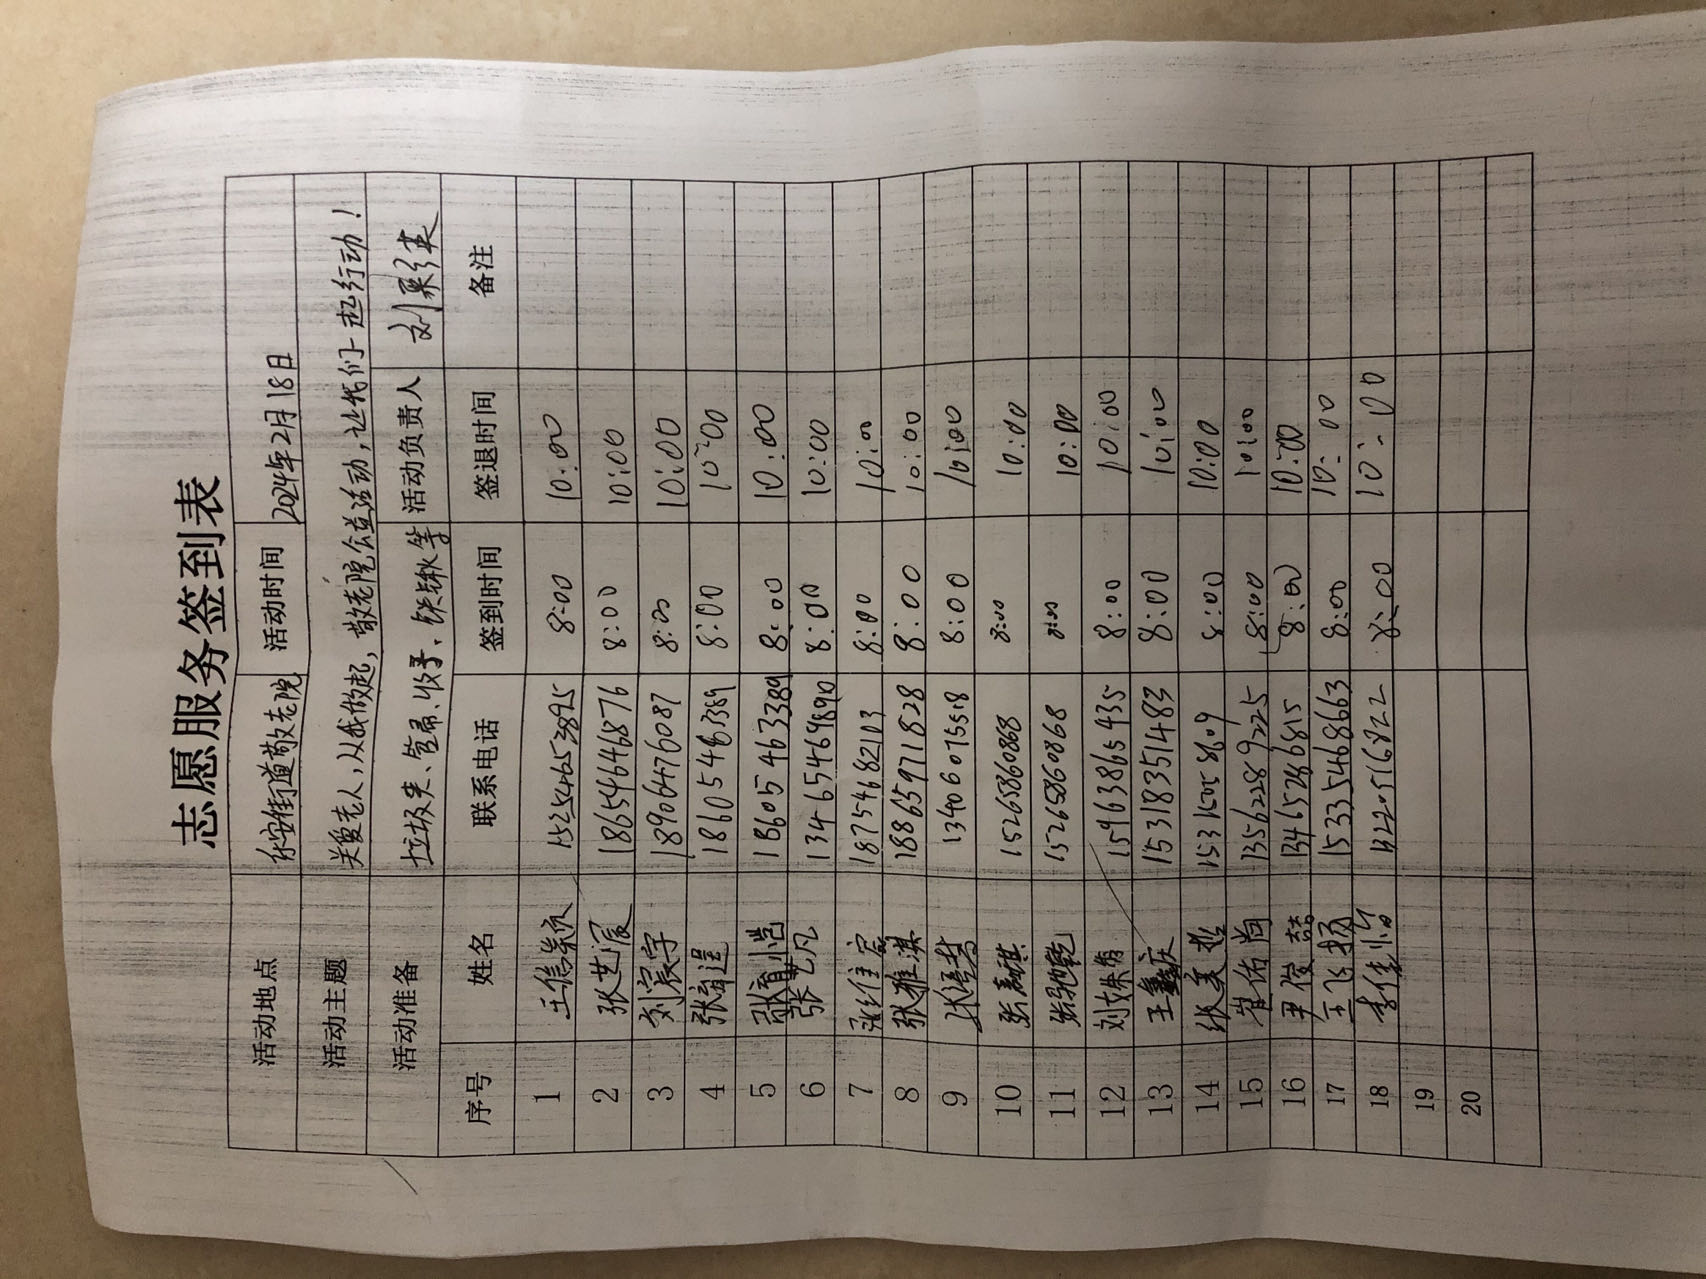 志愿服务签到表
活动地点 东安街道敬老院 活动时间 2024年2月18日
活动主题 关爱老人,从我做起,敬老院公益活动,让我们一起行动!
活动准备 垃圾夹、笤帚、铁锹等 活动负责人
序号 姓名 联系电话 签到时间 签退时间 备注
1 15254653895 8:00 10:00
2 张艺宸 18654646876 8:00 10:00
3 刘宸宇 18906476087 8:00 10:00
4 18605463389 8:00 10:00
5 张育恺 18605463389 8:00 10:00
6 张艺凡 13465469890 8:00 10:00
7 18754682103 8:00 10:00
8 张雅淇 18865971828 8:00 10:00
9 13406075518 8:00 10:00
10 张嘉祺 15265860868 8:00 10:00
11 张驰乾 15265860868 8:00 10:00
12 15963865435 8:00 10:00
13 王鑫庆 15318351483 8:00 10:00
14 8:00 10:00
15 崔佑尚 13562289225 8:00 10:00
16 尹俊喆 13461526815 8:00 10:00
17 王飞扬 15335468663 8:00 10:00
18 8:00 10:00
19
20